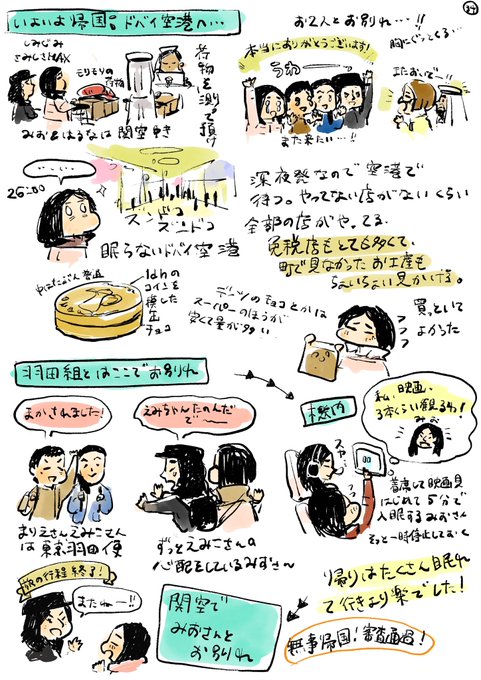 34
いよいよ帰国。ドバイ空港へ…
しみじみ
さみしさMAX
モリモリの
荷物
荷物を測って預け
みおとはるなは関空ゆき
お2人とお別れ…!!
胸にぐっとくる…
本当にありがとうございます!
うわー
また来たい…!!
またおいで〜!!
26:00
……
ズンドコ
ズンドコ
眠らないドバイ空港
深夜発なので空港で
待つ。やってない店がないくらい
全部の店がやってる
免税店もとても多くて、
町で見なかったお土産も
ちょいちょい見かける。
1dhの
コインを
模した
缶
チョコ
デーツのチョコとかは
スーパーのほうが
安くて量が多い
買っといて
よかった
羽田組とはここでお別れ
まかされました!
えみちゃんたのんだ
で〜〜
まりえさんえみこさん
は東京羽田便
ずっとえみこさんの
心配をしているみおさ〜
機内
スヤ…
私、映画
3本くらい観るわ!
みお
着席して映画見
はじめて5分で
入眠するみおさん
そっと一時停止しておく
帰りはたくさん眠れ
て行きより楽でした!
旅の行程終了!
またねー!!
関空で
みおさんと
お別れ
無事帰国!審査通過!